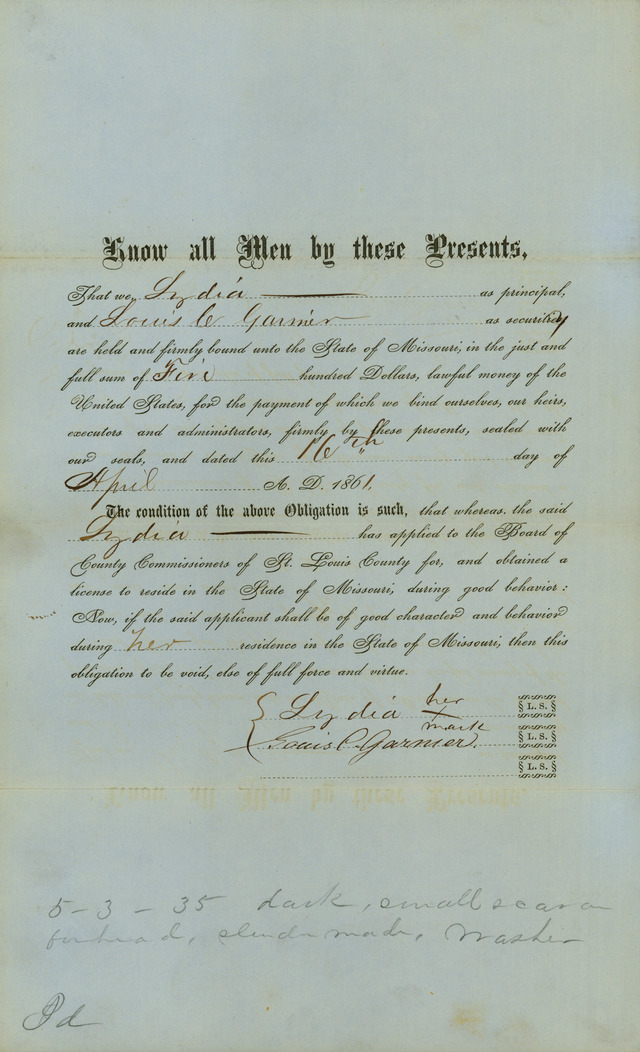 Know all Men by these Presents,
That we, Lydia as principal,
and Louis C Garnier as security
are held and firmly bound unto the State of Missouri, in the just and
full sum of Five hundred Dollars, lawful money of the
United States, for the payment of which we bind ourselves, our heirs,
executors and administrators, firmly by these presents, sealed with
our seals, and dated this 16th day of
April A. D. 1861.
The condition of the above Obligation is such, that whereas, the said
Lydia has applied to the Board of
County Commissioners of St. Louis County for, and obtained a
license to reside in the State of Missouri, during good behavior:
Now, if the said applicant shall be of good character and behavior
during her residence in the State of Missouri, then this
obligation to be void, else of full force and virtue.
Lydia her mark L. S.
Louis C. Garnier. L. S.
L. S.
5-3-35 dark, small scar on
forhead, slender made, Washer
Pd